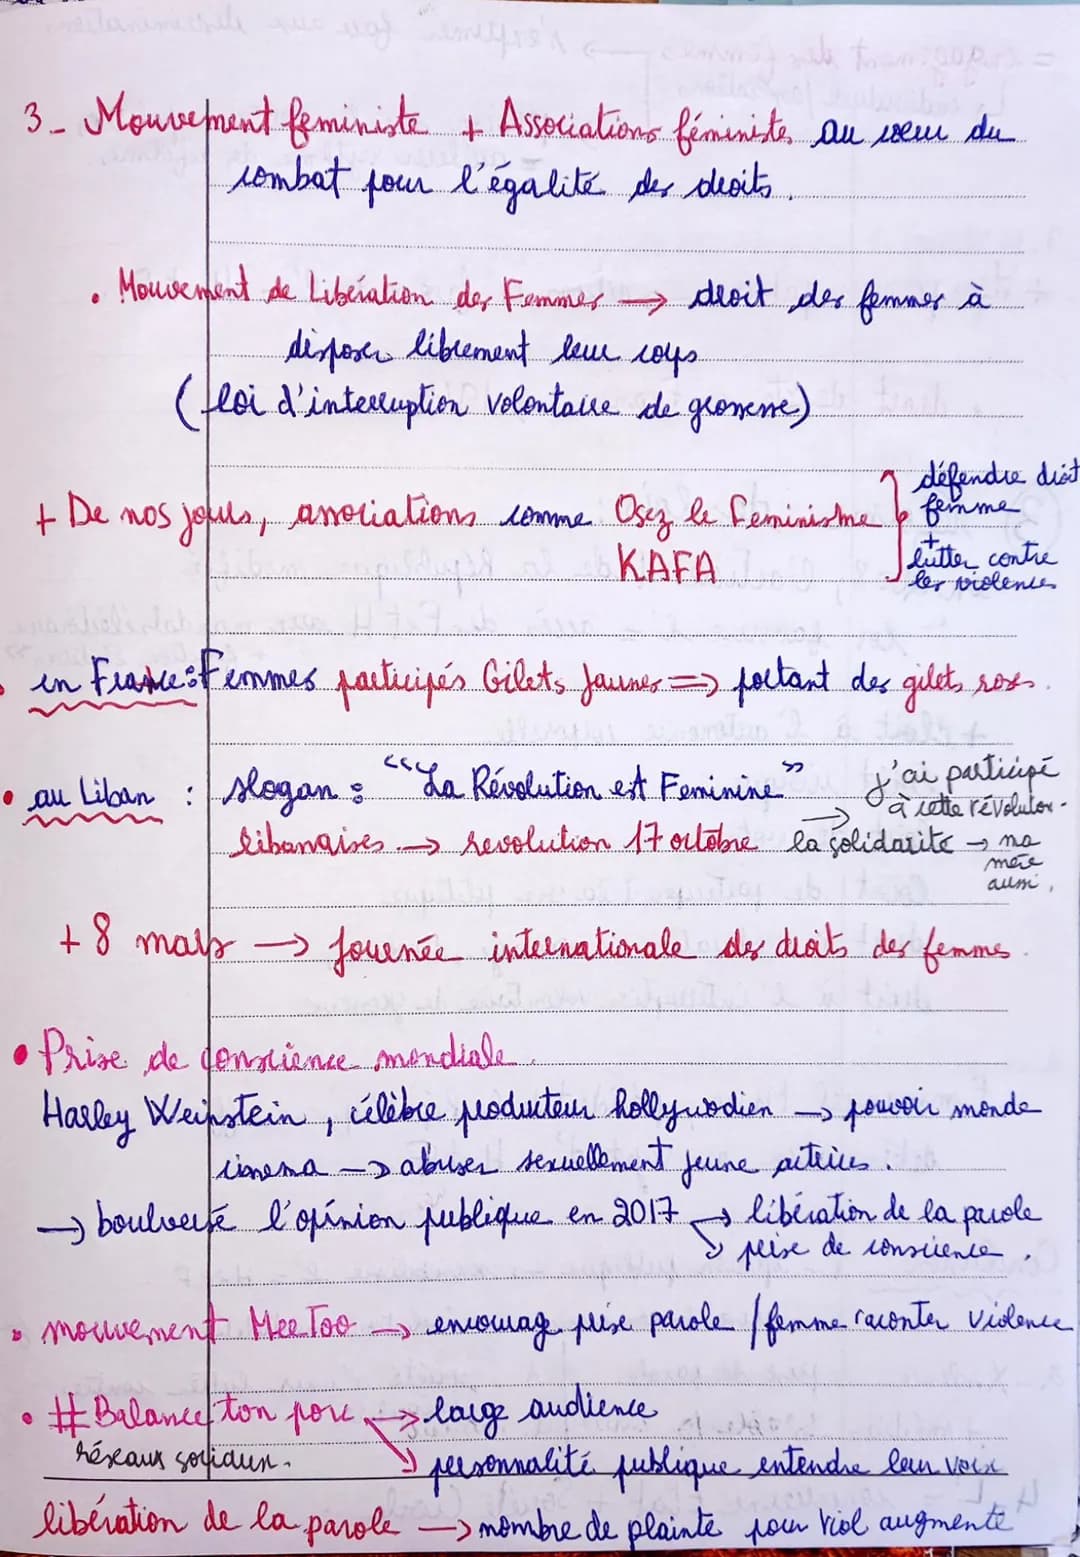 3_ Mouvement feministe + Associations féministes au coeur du
combat pour l'égalité des droits.
• Mouvement de Libération des Femmes → droit des femmes à
disposer librement leur corps
( loi d'interruption volontaire de grossesse)
+ De nos jours, associations comme Osez le Feminisme
KAFA
défendre droit
femme
+
lutter contre
les violences
en France : Femmes participés Gilets Jaunes => portant des gilets roses.
• au Liban : slogan : "La Révolution est Feminine"
j'ai participé
à cette révolution.
libanaises → revolution 17 octobre → la solidarité → ma
mère
aussi.
+ 8 mars → Journée internationale des droits des femmes.
• Prise de conscience mondiale.
Harley Weinstein, célèbre producteur hollywodien → pouvoir monde
cinema → abuser sexuellement jeune actrices.
→ boulversé l'opinion publique en 2017 → libération de la parole
↘ prise de conscience.
• mouvement MeeToo → encourag prise parole / femme raconter violence
• # Balance ton porc → large audience
réseaux sociaux.
↘ personnalité publique entendre leur voix
libération de la parole → nombre de plainte pour viol augmenté